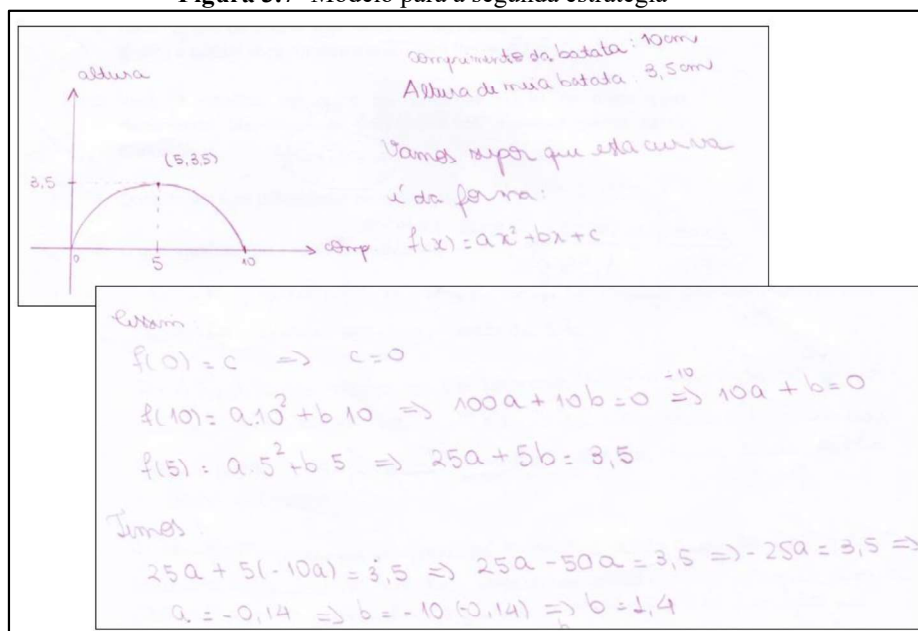 Figura 3.7- Modelo para a segunda estratégia
comprimento da batata: 10cm
Altura de meia batata: 3,5cm
altura
(5,3,5)
3,5
0
5
10
comp
Vamos supor que esta curva
é da forma:
f(x) = ax² + bx + c
Assim:
f(0) = c => c = 0
f(10) = a.10² + b.10 => 100a + 10b = 0 =>÷10 10a + b = 0
f(5) = a.5² + b.5 => 25a + 5b = 3,5
Temos:
25a + 5(-10a) = 3,5 => 25a - 50a = 3,5 => -25a = 3,5 =>
a = -0,14 => b = -10.(-0,14) => b = 1,4